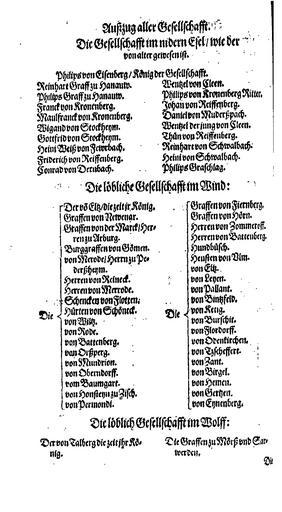 Auszug aller Gesellschafft.
Die Gesellschafft im nidern Esel / wie der
von alter gewesen ist.
Philips von Eisenberg / König der Gesellschafft.
Reinhart Graff zu Hanauw.
Philips Graff zu Hanauw.
Franck von Kronenberg.
Maulfranck von Kronenberg.
Wigand von Stockheym.
Gottfrid von Stockheym.
Heini Weiß von
Friderich von Reiffenberg.
Conrad von Dernbach.
Wentzel von Cleen.
Philips von Kronenberg Ritter.
Johan von Reiffenberg.
Daniel von Muderßpach.
Wentzel der jung von Cleen.
Thün von Reiffenberg.
Reinhart von Schwalbach.
Heini von Schwalbach.
Philips Graschlag.
Die löbliche Gesellschafft im Wind:
Die
Der vō Eltz / die zeit jr König.
Graffen von Newenar.
Graffen von der Marck / Her-
ren zu Arburg.
Burggraffen von Gömen.
von Merode / Herrn zu Pe-
derßheym.
Herren von Reineck.
Herren von Merrode.
Schencken von Flotten.
Hürten von Schöneck.
von Wiltz.
von Rode.
von Battenberg.
von Orßperg.
von Mundrion.
von Oberndorff.
vom Baumgart.
von Honsteyn zu Zisch.
von Permondt.
Die
Graffen von Fiernberg.
Graffen von Hörn.
Herren von Zommereff.
Herren von Battenberg.
Hundbüsch.
Heusten von Ulm.
von Eltz.
von Leyen.
von Pallant.
von Bintzfeld.
von Kettg.
von Burschit.
von Flordorff.
von Odenkirchen.
von Tzscheffert.
von Zant.
von Birgel.
von Hemen.
von Gertzen.
von Eynenberg.
Die löblich Gesellschafft im Wolff:
Der von Talberg die zeit jhr Kö-
nig.
Die Graffen zu Mörß und Sar-
werden.
Die